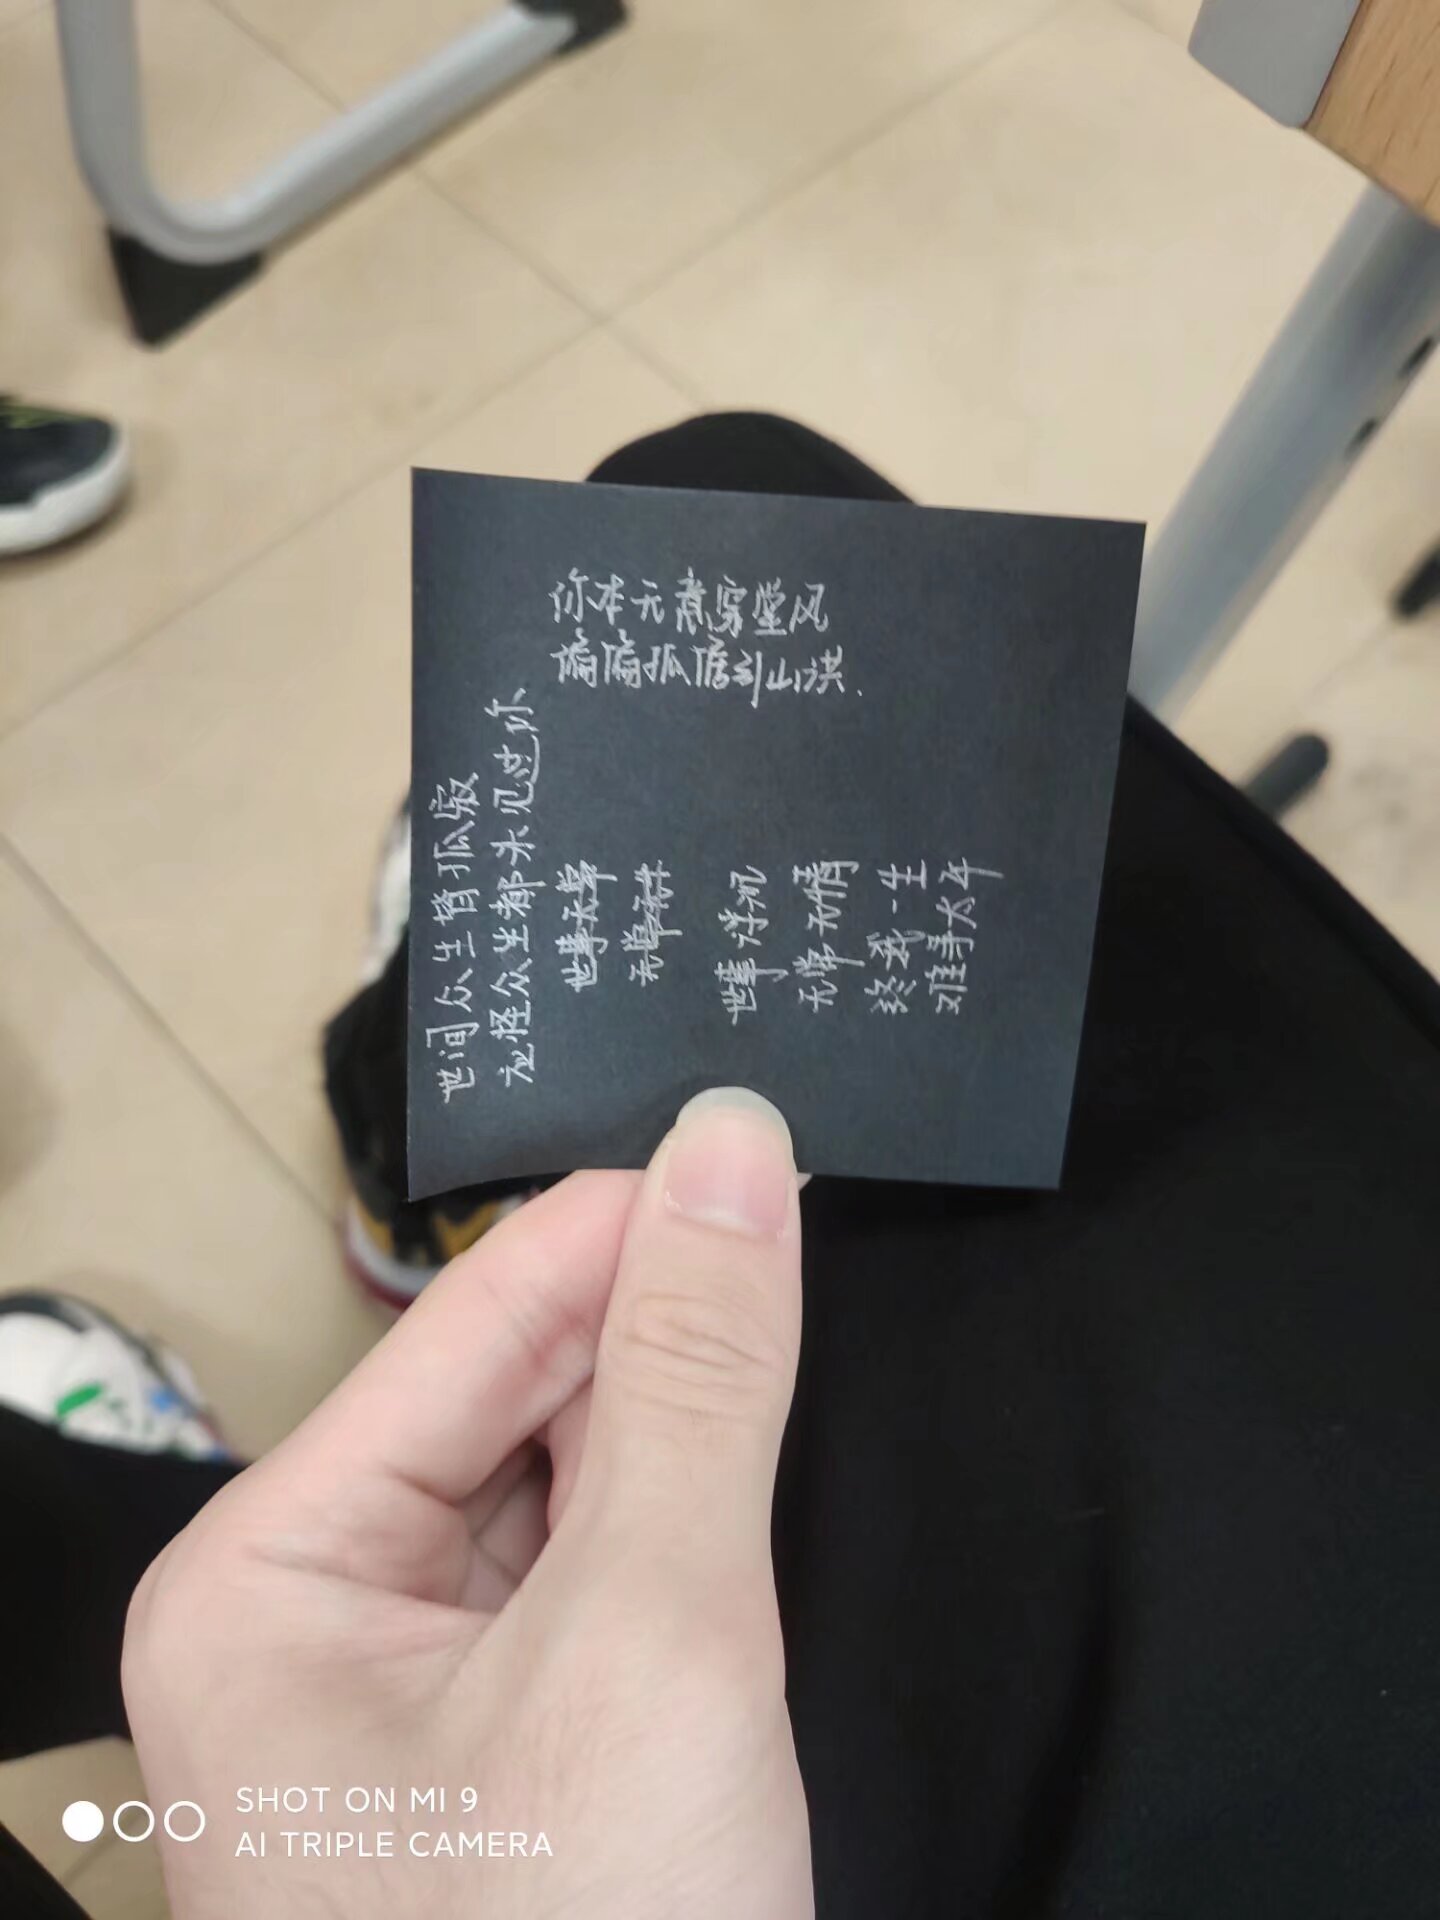 你本无意穿堂风
偏偏孤倨引山洪.
世间众生皆孤寂
应怪众生都未见过你
世事无常
世事浮沉
无常无情
终我一生
难寻太年
SHOT ON MI 9
AI TRIPLE CAMERA